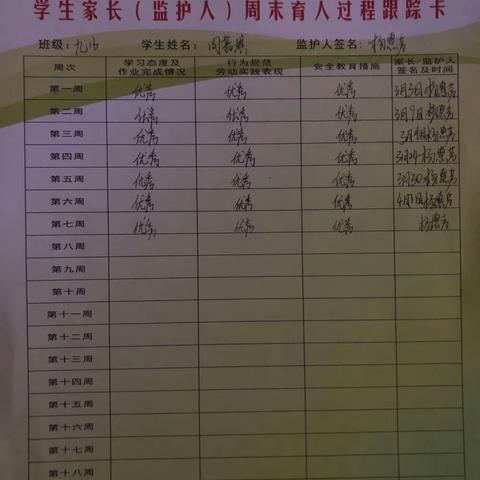 学生家长（监护人）周末育人过程跟踪卡
班级: 学生姓名: 监护人签名:
周次 学习态度及作业完成情况 行为规范劳动实践表现 安全教育措施 家长/监护人签名及时间
第一周 优秀 优秀 优秀 3月3日
第二周 优秀 优秀 优秀 3月9日
第三周 优秀 优秀 优秀
第四周 优秀 优秀 优秀 3月24
第五周 优秀 优秀 优秀 3月30
第六周 优秀 优秀 优秀
第七周 优秀 优秀 优秀
第八周
第九周
第十周
第十一周
第十二周
第十三周
第十四周
第十五周
第十六周
第十七周
第十八周